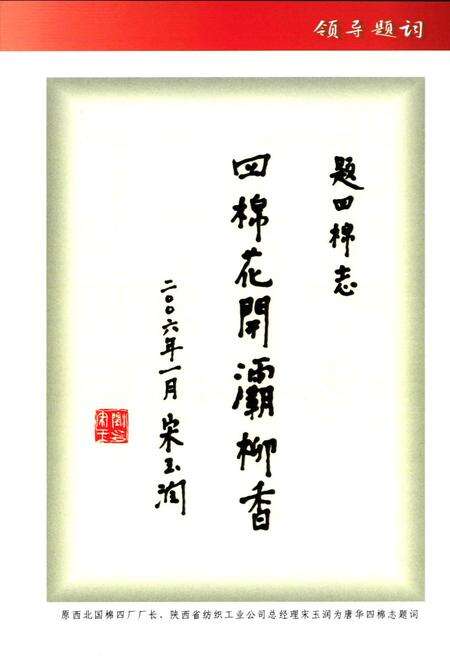 领导题词
题四棉志
四棉花開灞柳香
二〇〇六年一月 宋玉润
原西北国棉四厂厂长、陕西省纺织工业公司总经理宋玉润为唐华四棉志题词